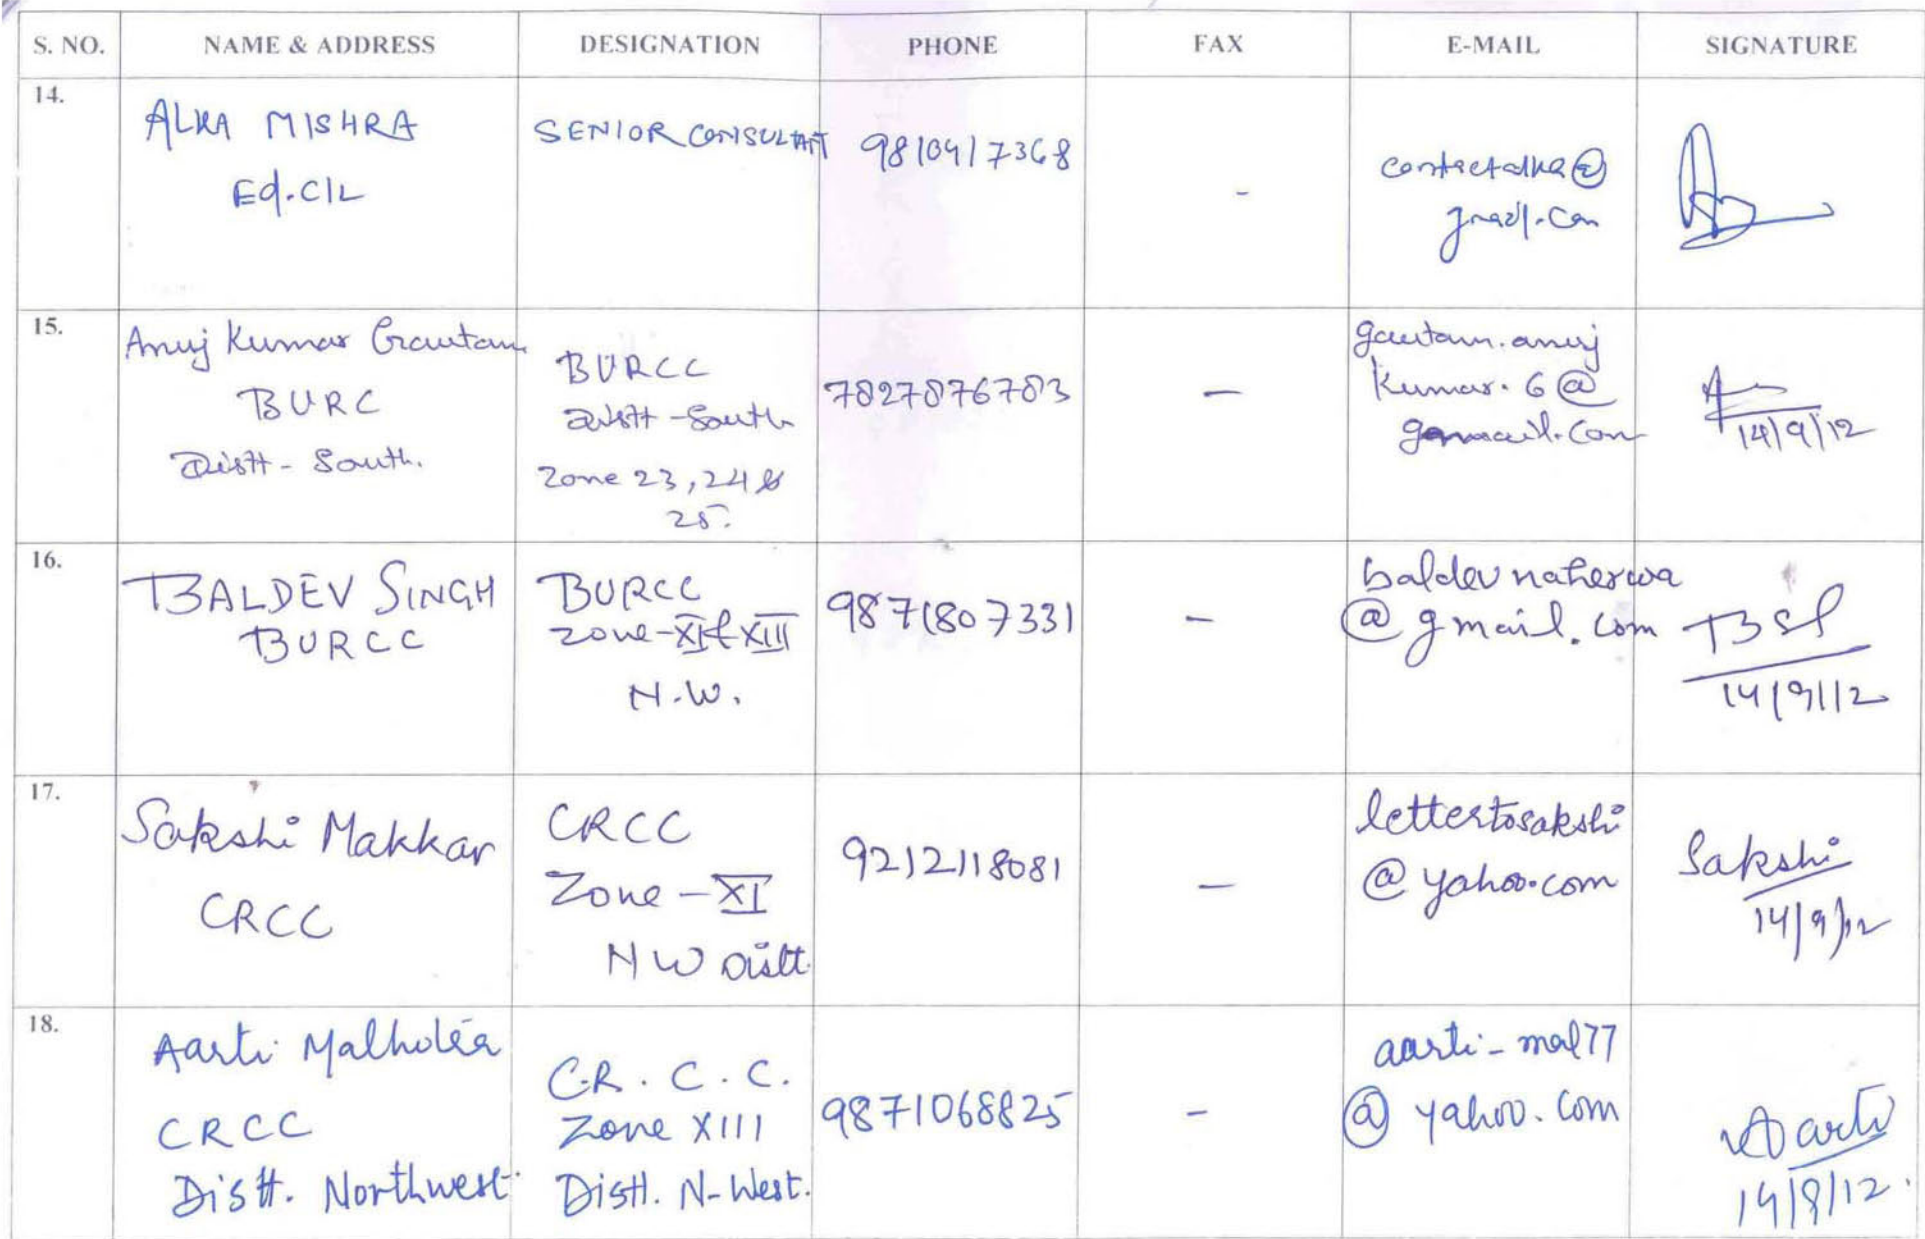 S. NO. NAME & ADDRESS DESIGNATION PHONE FAX E-MAIL SIGNATURE
14.
ALKA MISHRA
Ed.CIL
SENIOR CONSULTANT
9810417368
-
contactalka@
gmail.com
15.
Anuj Kumar Gautam
BURC
Distt - South.
BURCC
Distt - South
Zone 23, 24 &
25.
7827876783
-
gautam.anuj
kumar.6@
gmail.com
14/9/12
16.
BALDEV SINGH
BURCC
BURCC
Zone-XI & XIII
N.W.
9871807331
-
baldevnaherwa
@gmail.com
14/9/12
17.
Sakshi Makkar
CRCC
CRCC
Zone - XI
NW Distt.
9212118081
-
lettertosakshi
@yahoo.com
Sakshi
14/9/12
18.
Aarti Malhotra
CRCC
Distt. Northwest.
C.R.C.C.
Zone XIII
Distt. N-West.
9871068825
-
aarti_mal77
@yahoo.com
Aarti
14/9/12.